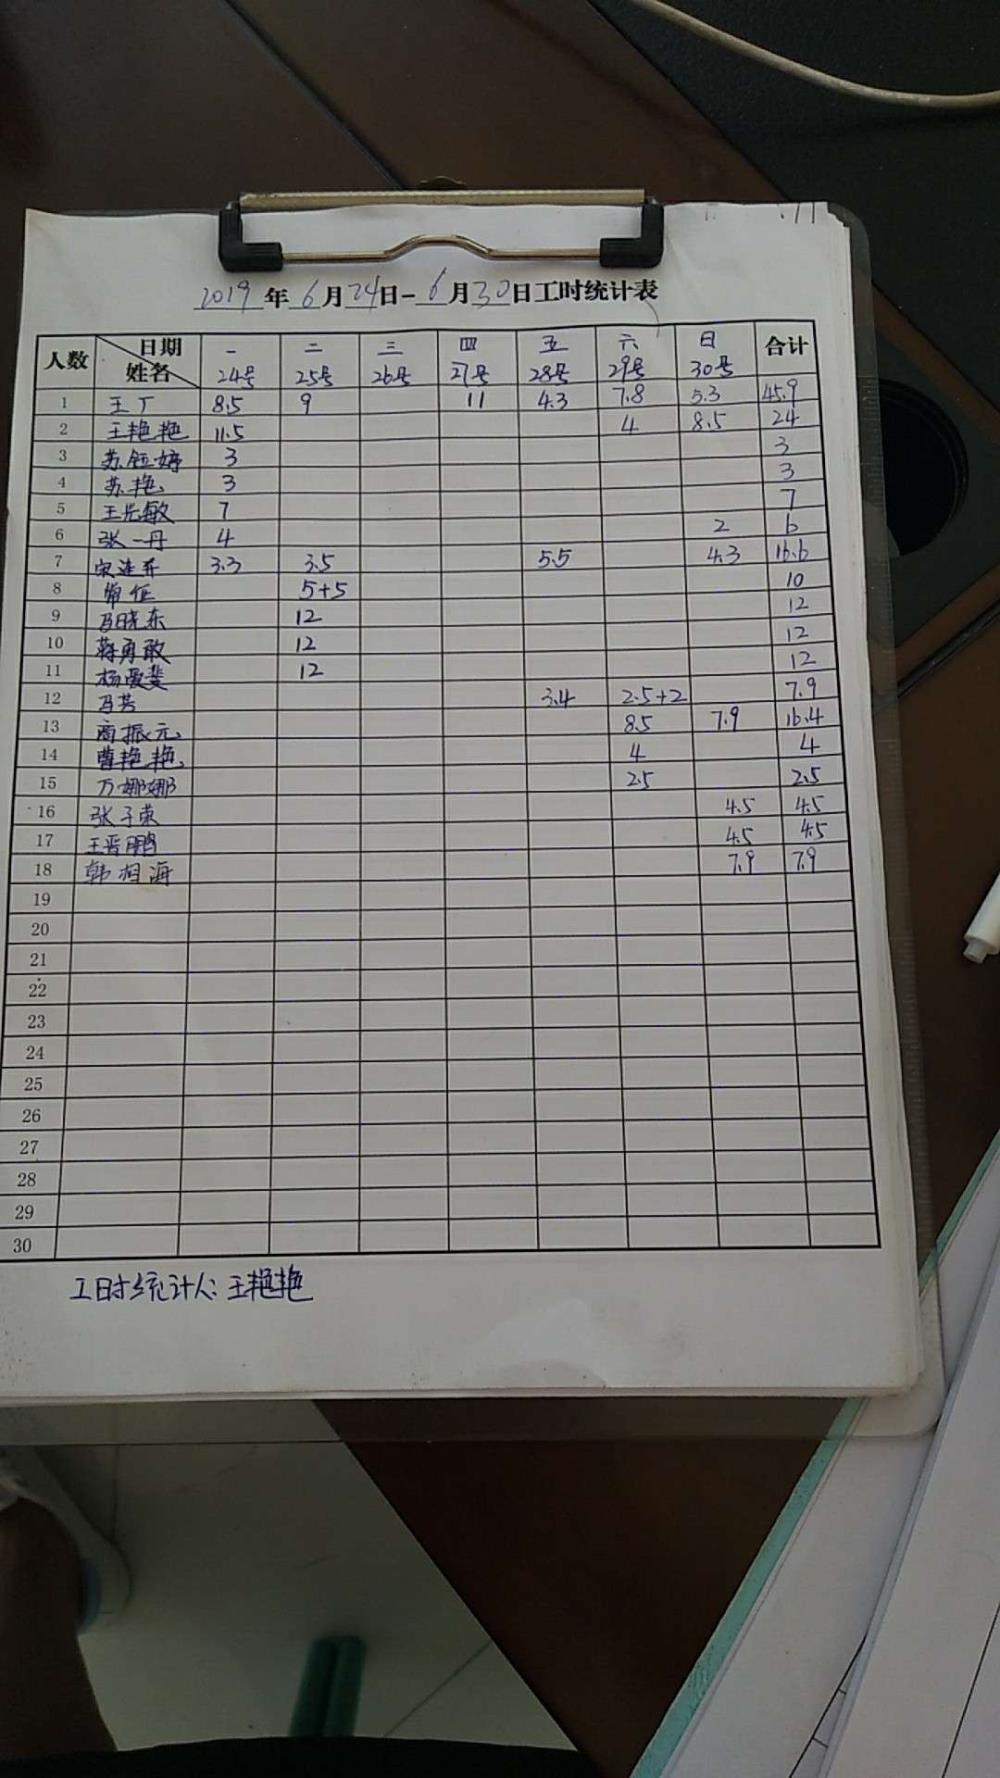 2019年6月24日-6月30日工时统计表
人数 日期 姓名 一 24号 二 25号 三 26号 四 27号 五 28号 六 29号 日 30号 合计
1 王丁 8.5 9 11 4.3 7.8 5.3 45.9
2 王艳艳 11.5 4 8.5 24
3 苏钰婷 3 3
4 苏艳 3 3
5 王先敏 7 7
6 张一丹 4 2 6
7 3.3 3.5 5.5 4.3 16.6
8 5+5 10
9 冯晓东 12 12
10 蒋勇敢 12 12
11 杨爱斐 12 12
12 冯芳 3.4 2.5+2 7.9
13 商振元 8.5 7.9 16.4
14 曹艳艳 4 4
15 万娜娜 2.5 2.5
16 张子荣 4.5 4.5
17 王晋鹏 4.5 4.5
18 韩相海 7.9 7.9
19
20
21
22
23
24
25
26
27
28
29
30
工时统计人:王艳艳